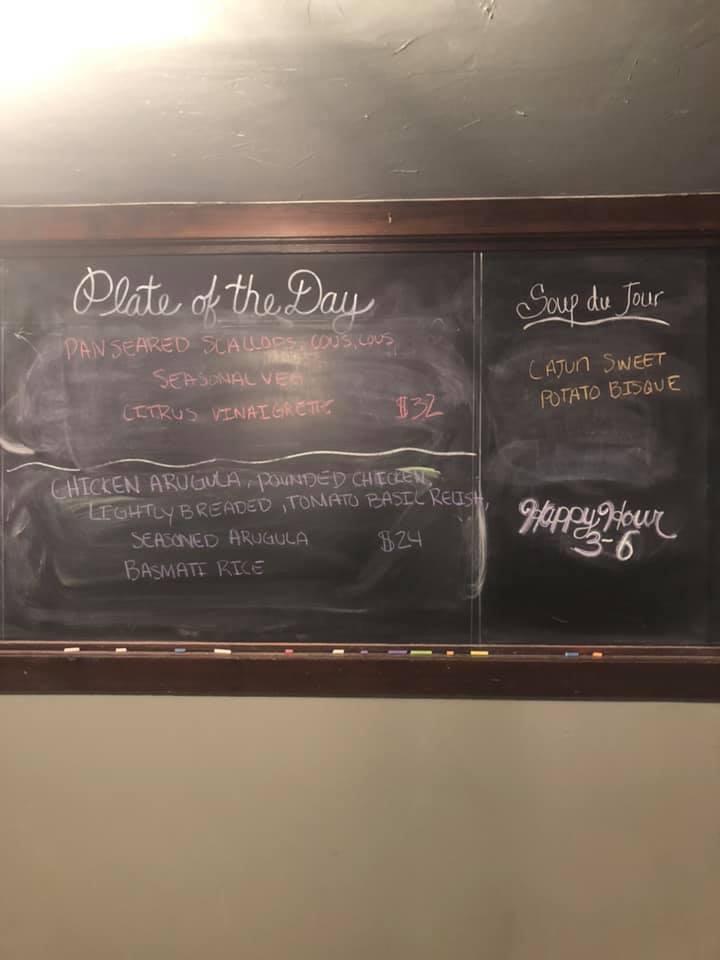 Plate of the Day
PAN SEARED SCALLOPS, COUS, COUS,
SEASONAL VEG
CITRUS VINAIGRETTE $32
CHICKEN ARUGULA, POUNDED CHICKEN,
LIGHTLY BREADED, TOMATO BASIL RELISH,
SEASONED ARUGULA $24
BASMATI RICE
Soup du Jour
CAJUN SWEET
POTATO BISQUE
Happy Hour
3-6